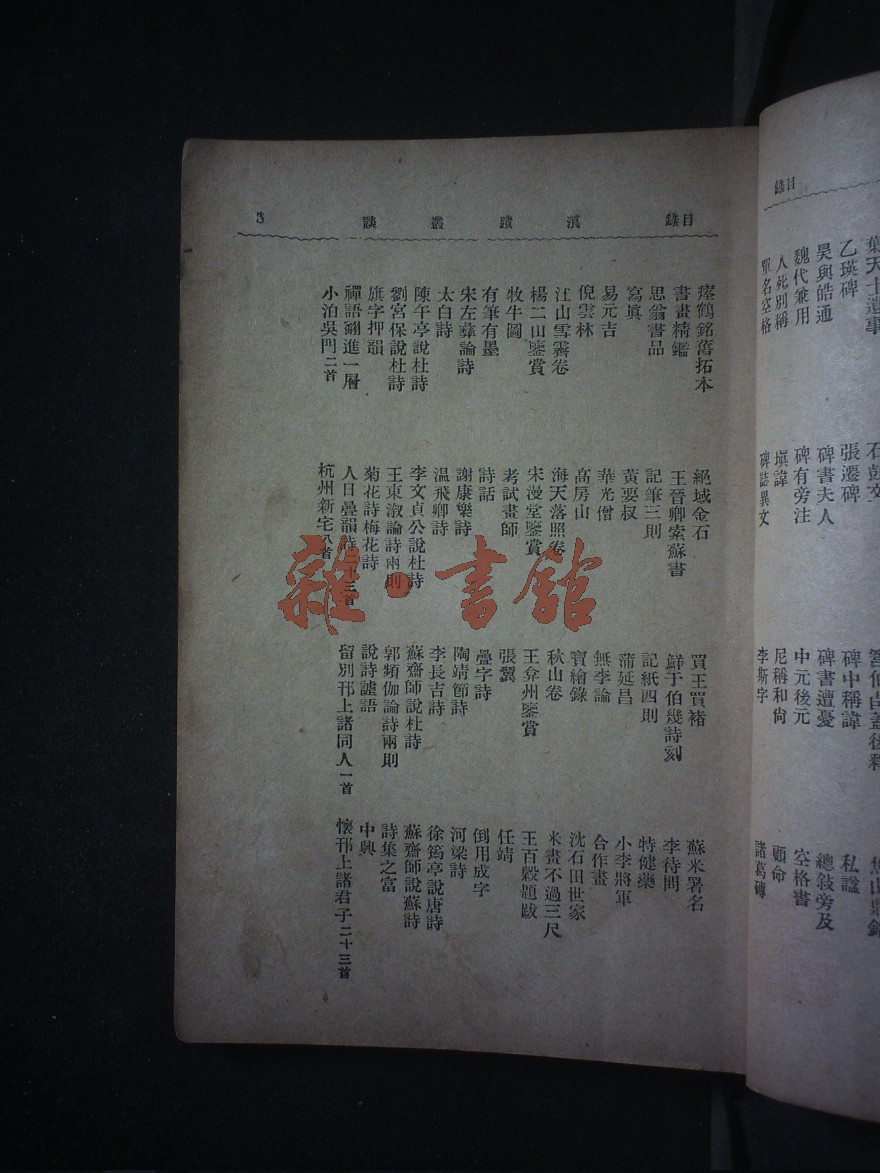 目錄
葉天士遺事 石鼓文
乙瑛碑 張遷碑 碑中稱諱 私諡
昊與皓通 碑書夫人 碑書遭憂 總敍旁及
魏代兼用 碑有旁注 中元後元 空格書
人死別稱 塡諱 尼稱和尙 顧命
單名空格 碑誌異文 李斯字 諸葛磚
目錄 浪蹟叢談 3
瘞鶴銘舊拓本 絕域金石 買王買褚 蘇米署名
書畫精鑑 王晉卿索蘇書 鮮于伯幾詩刻 李待問
思翁書品 記筆三則 記紙四則 特健藥
寫眞 黃要叔 蒲延昌 小李將軍
易元吉 華光僧 無李論 合作畫
倪雲林 高房山 寶繪錄 沈石田世家
江山雪霽卷 海天落照卷 秋山卷 米畫不過三尺
楊二山鑒賞 宋漫堂鑒賞 王弇州鑒賞 王百穀題跋
牧牛圖 考試畫師 張翼 任靖
有筆有墨 詩話 疊字詩 倒用成字
宋左彝論詩 謝康樂詩 陶靖節詩 河梁詩
太白詩 溫飛卿詩 李長吉詩 徐筠亭說唐詩
陳午亭說杜詩 李文貞公說杜詩 蘇齋師說杜詩 蘇齋師說蘇詩
劉宮保說杜詩 王東溆論詩兩則 郭頻伽論詩兩則 詩集之富
旗字押韻 菊花詩梅花詩 說詩謔語 中興
禪語翻進一層 人日疊韻詩二十三首 留別邗上諸同人一首 懷邗上諸君子二十三首
小泊吳門二首 杭州新宅八首
雜·書館